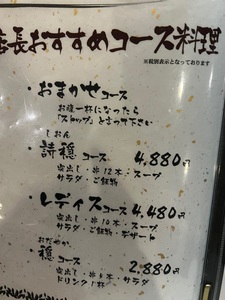 店長おすすめコース料理
※税別表示となっております
・おまかせコース
お腹一杯になったら
「ストップ」と言って下さい
しおん
・詩穏コース 4,880円
突出し・串12本・スープ
サラダ・ご飯物
・レディスコース 4,480円
突出し・串10本・スープ
サラダ・ご飯物・デザート
おだやか
・穏コース 2,880円
突出し・串8本・サラダ
ドリンク1杯